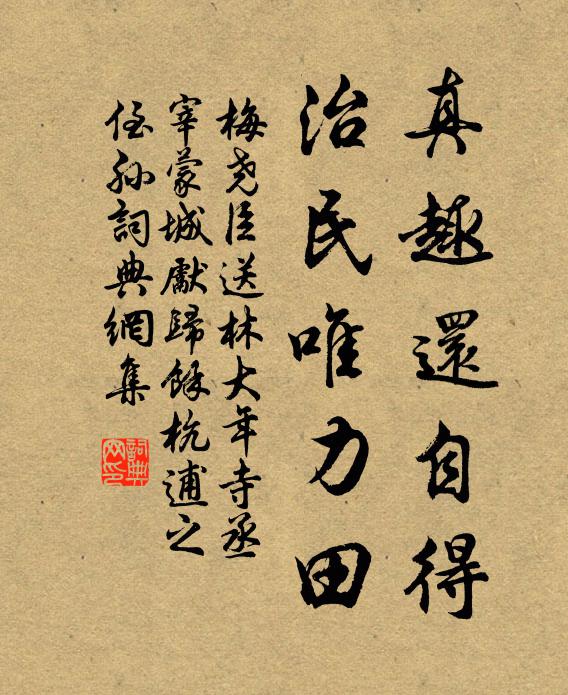 真趣還自得
治民唯力田
梅尧臣送林大年寺丞
宰蒙城獻歸餘杭逋之
侄孙詞典網集
詞典网印